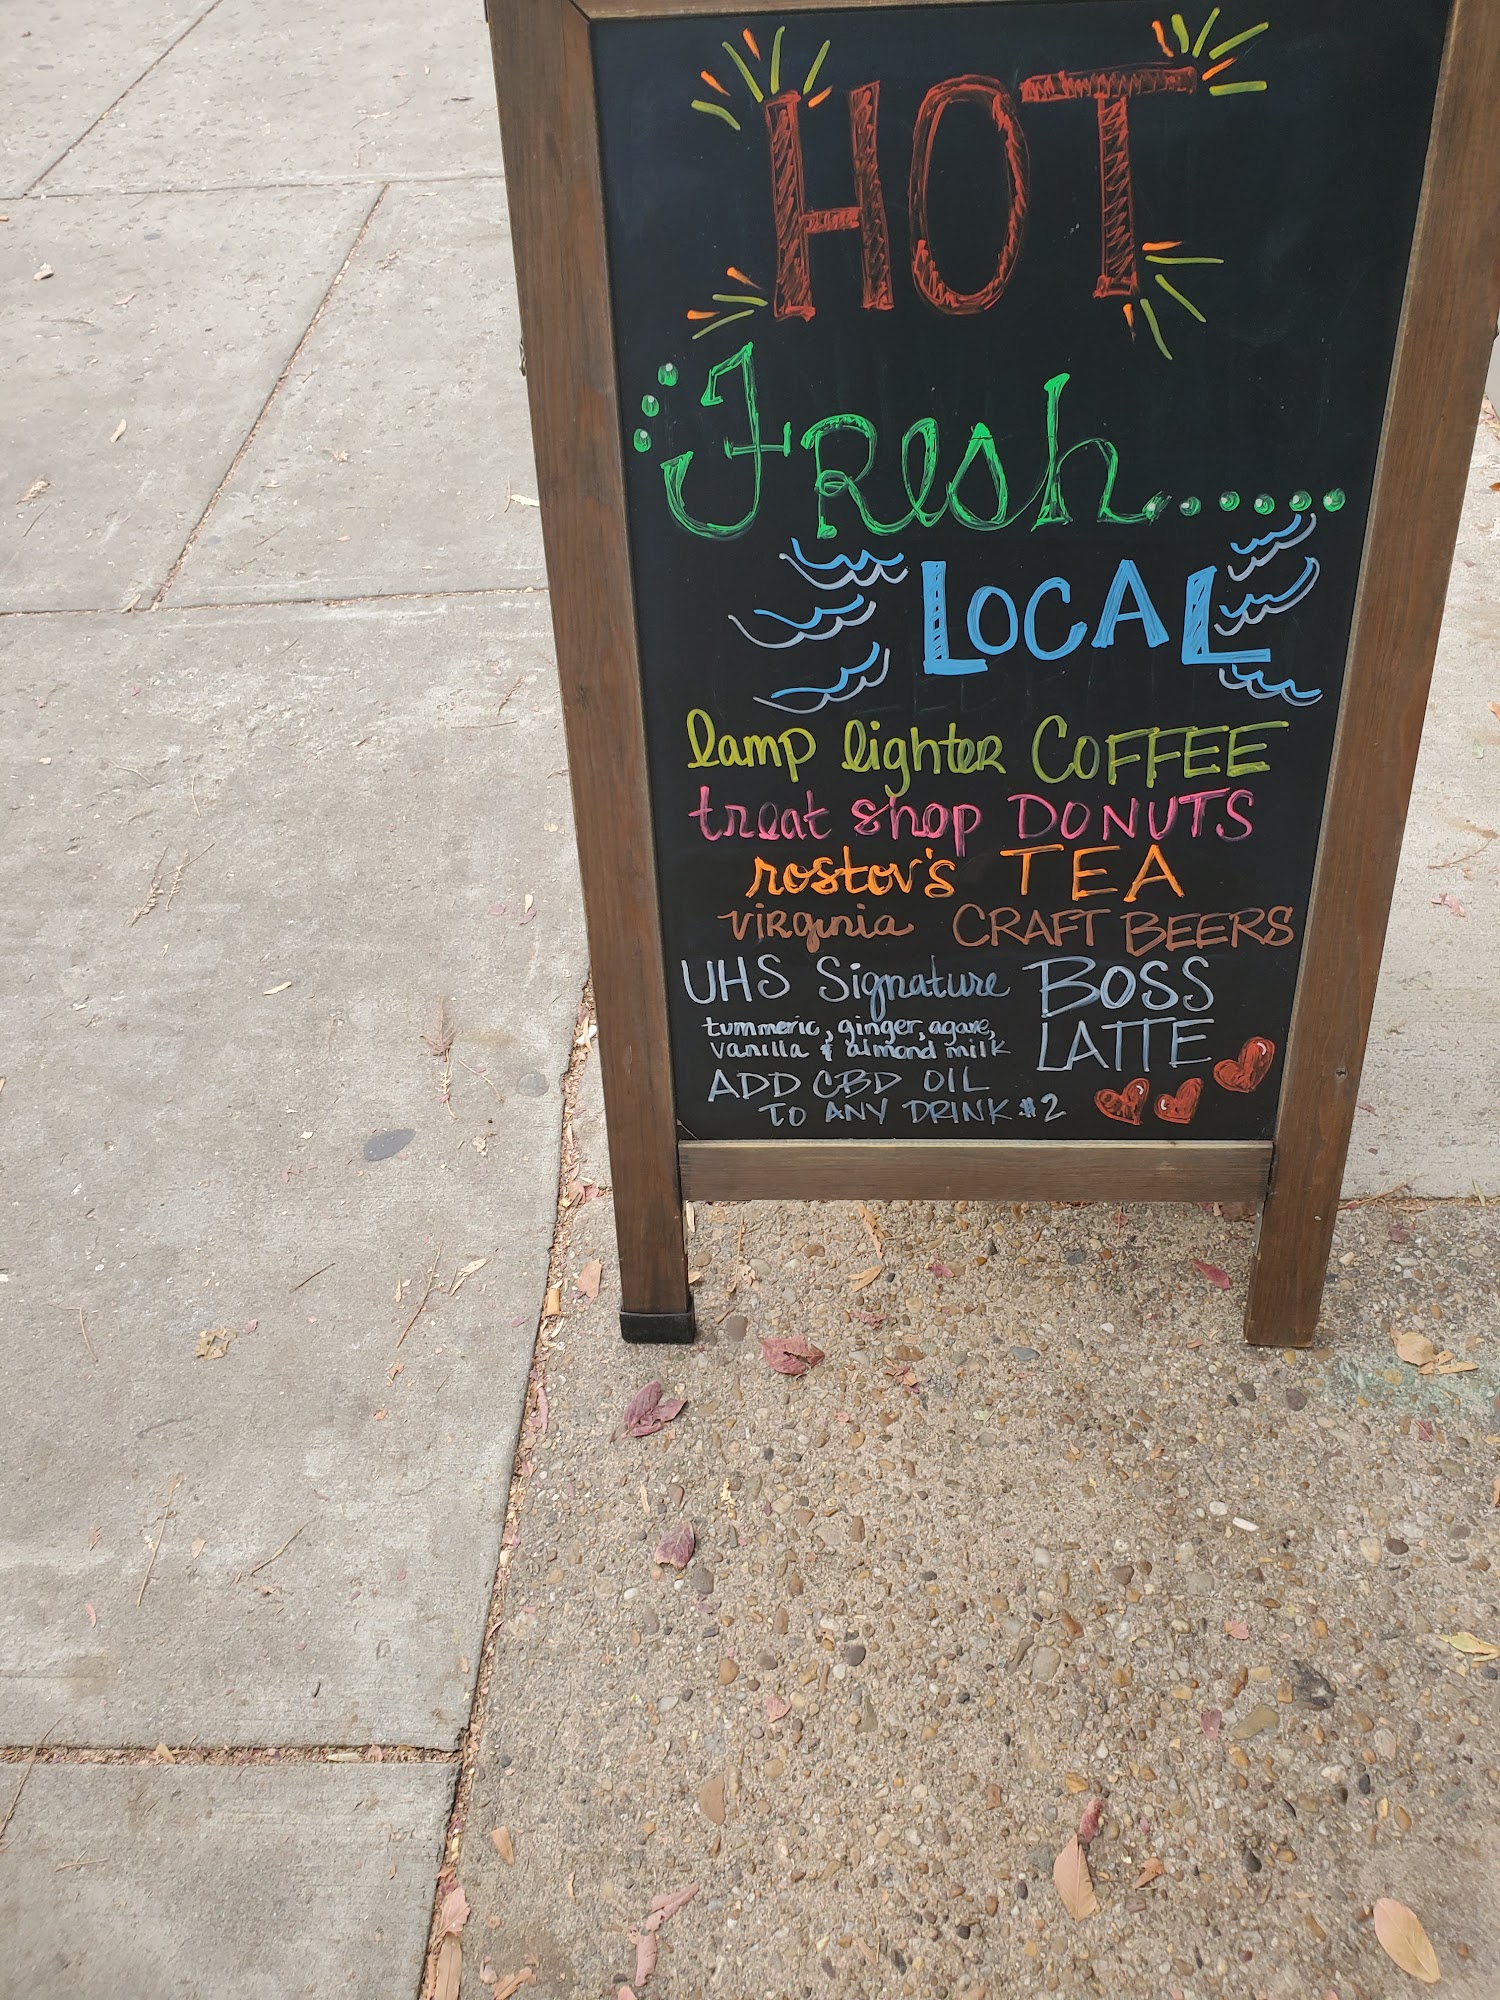 HOT
Fresh.....
LOCAL
lamp lighter COFFEE
treat shop DONUTS
rostov's TEA
virginia CRAFT BEERS
UHS Signature BOSS
LATTE
tummeric, ginger, agave,
vanilla & almond milk
ADD CBD OIL
TO ANY DRINK $2